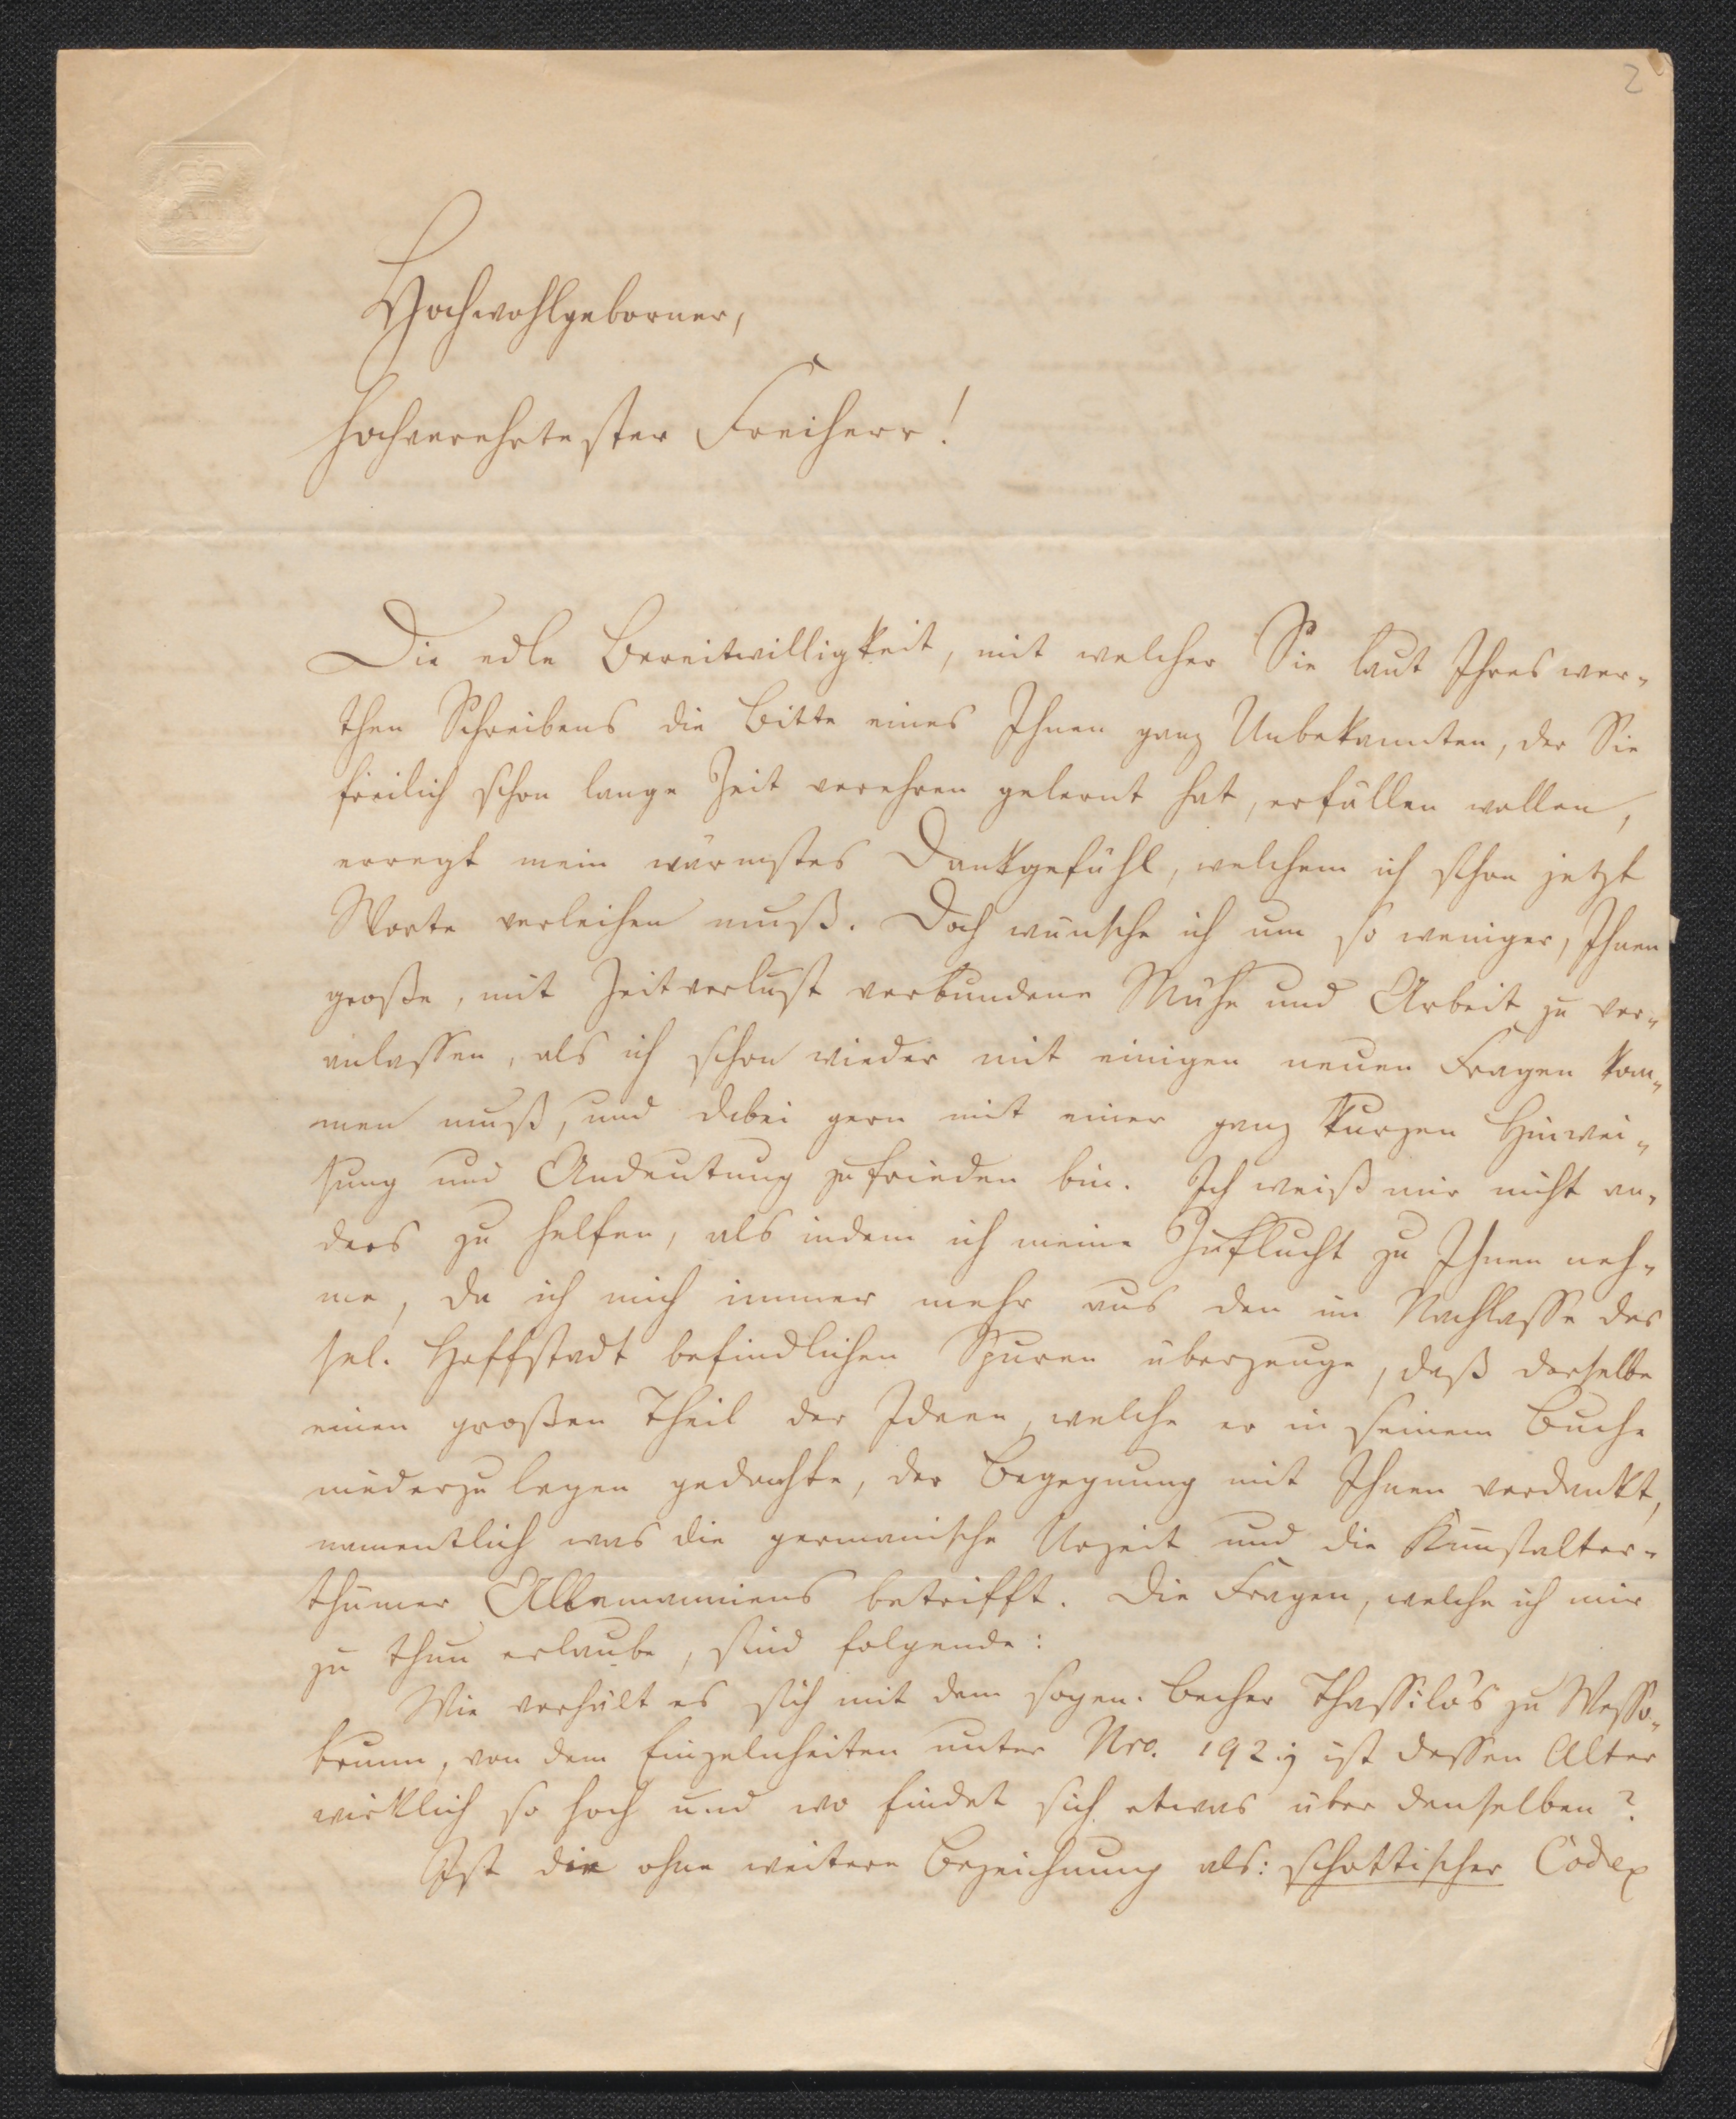 2
BATH
Hochwohlgeborner,
Hochverehrtester Freiherr!
Die edle Bereitwilligkeit, mit welcher Sie laut Ihres wer-
then Schreibens die Bitte eines Ihnen ganz Unbekannten, der Sie
freilich schon lange Zeit verehren gelernt hat, erfüllen wollen,
erregt mein wärmstes Dankgefühl, welchem ich schon jetzt
Worte verleihen muß. Doch wünsche ich um so weniger, Ihnen
große, mit Zeitverlust verbundene Mühe und Arbeit zu ver-
anlassen, als ich schon wieder mit einigen neuen Fragen kom-
men muß, und dabei gern mit einer ganz kurzen Hinwei-
sung und Andeutung zufrieden bin. Ich weiß mir nicht an-
ders zu helfen, als indem ich meine Zuflucht zu Ihnen neh-
me, da ich mich immer mehr aus den im Nachlasse des
sel. Hoffstadt befindlichen Spuren überzeuge, daß derselbe
einen großen Theil der Ideen, welche er in seinem Buche
niederzulegen gedachte, der Begegnung mit Ihnen verdankt,
namentlich was die germanische Urzeit und die Kunstalter-
thümer Allemanniens betrifft. Die Fragen, welche ich mir
zu thun erlaube, sind folgende:
Wie verhält es sich mit dem sogen. Becher Thassilo's zu Wesso-
brunn, von dem Einzelnheiten unter Nro. 192.; ist dessen Alter
wirklich so hoch und wo findet sich etwas über denselben?
Ist die ohne weitere Bezeichnung als: schottischer Codex